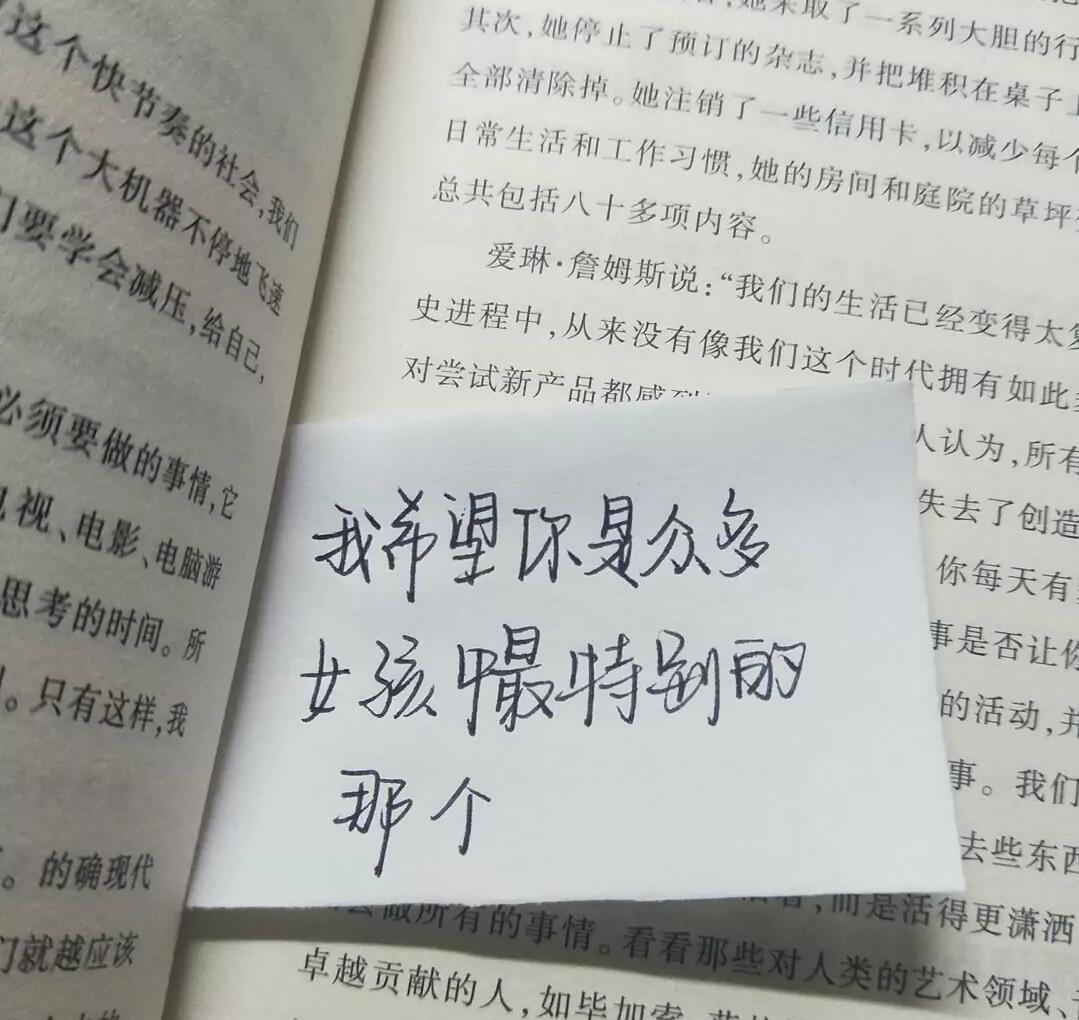 这个快节奏的社会,我们
这个大机器不停地飞速
们要学会减压,给自己,
必须要做的事情,它
视、电影、电脑游
思考的时间。所
。只有这样,我
。的确现代
们就越应该
她采取了一系列大胆的行
其次,她停止了预订的杂志,并把堆积在桌子上
全部清除掉。她注销了一些信用卡,以减少每个
日常生活和工作习惯,她的房间和庭院的草坪
总共包括八十多项内容。
爱琳·詹姆斯说:“我们的生活已经变得太复
史进程中,从来没有像我们这个时代拥有如此
对尝试新产品都感到
人认为,所有
失去了创造
你每天有
事是否让你
的活动,并
事。我们
去些东西
我希望你是众多
女孩中最特别的
那个
,而是活得更潇洒
做所有的事情。看看那些对人类的艺术领域、
卓越贡献的人,如毕加索、